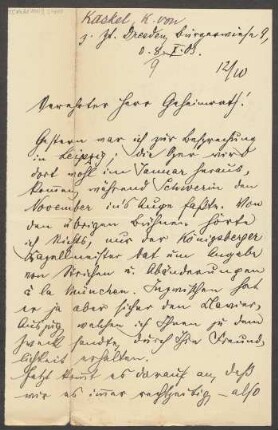 Kaskel, K. von
z. Zt. Dresden, Bürgerwiese 9,
d. 8. X. 03.
9
12/10
Verehrter Herr Geheimrath!
Gestern war ich zur Besprechung
in Leipzig; die Oper wird
dort wohl im Januar heraus-
kommen, während Schwerin den
November in's Auge faßte. Von
den übrigen Bühnen hörte
ich Nichts, nur der Königsberger
Kapellmeister bat um Angabe
von Strichen u. Abänderungen
à la München. Inzwischen hat
er ja aber sicher den Clavier-
Auszug, welchen ich Ihnen zu dem
Zweck sandte, durch Ihre Freund-
lichkeit erhalten.
Jetzt kommt es darauf an, daß
wir es immer rechtzeitig, – also